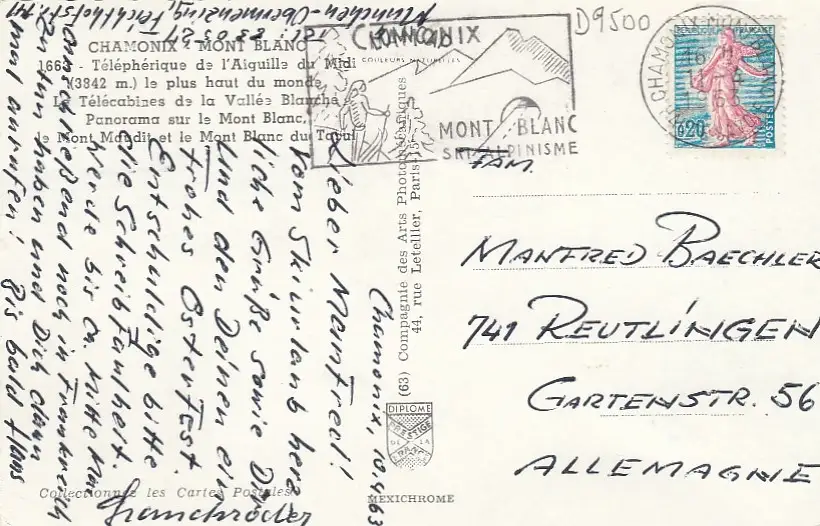 CHAMONIX - MONT BLANC
1668 - Téléphérique de l'Aiguille du Midi
(3842 m.) le plus haut du monde
Le Télécabines de la Vallée Blanche
Panorama sur le Mont Blanc,
le Mont Maudit et le Mont Blanc du Tacul
COULEURS NATURELLES
CHAMONIX
MONT BLANC
SKI ALPINISME
D9500
CHAMONIX-MONT
REPUBLIQUE FRANÇAISE
0,20
POSTES
Chamonix, 10.4.63
Lieber Manfred!
Vom Skiurlaub herz
liche Grüße sowie Dir
und den Deinen ein
frohes Osterfest.
Entschuldige bitte
die Schreibfaulheit.
Werde bis ca. Mitte Mai
anschließend noch in Frankreich
zu tun haben und Dich dann
mal anrufen! Bis bald Hans
München-Obermenzing, Feichthofstr.
(63) Compagnie des Arts Photomécaniques
44, rue Letellier, Paris-15e
DIPLOME
PRESTIGE
DE LA
FRANCE
MEXICHROME
Collectionnez les Cartes Postales
FAM.
MANFRED BAECHLER
741 REUTLINGEN
GARTENSTR. 56
ALLEMAGNE